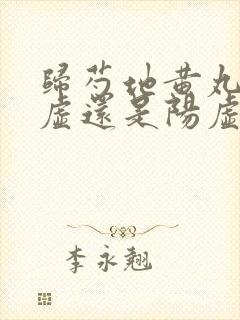 歸芍地黃丸
虛還是陽虛
李永翹